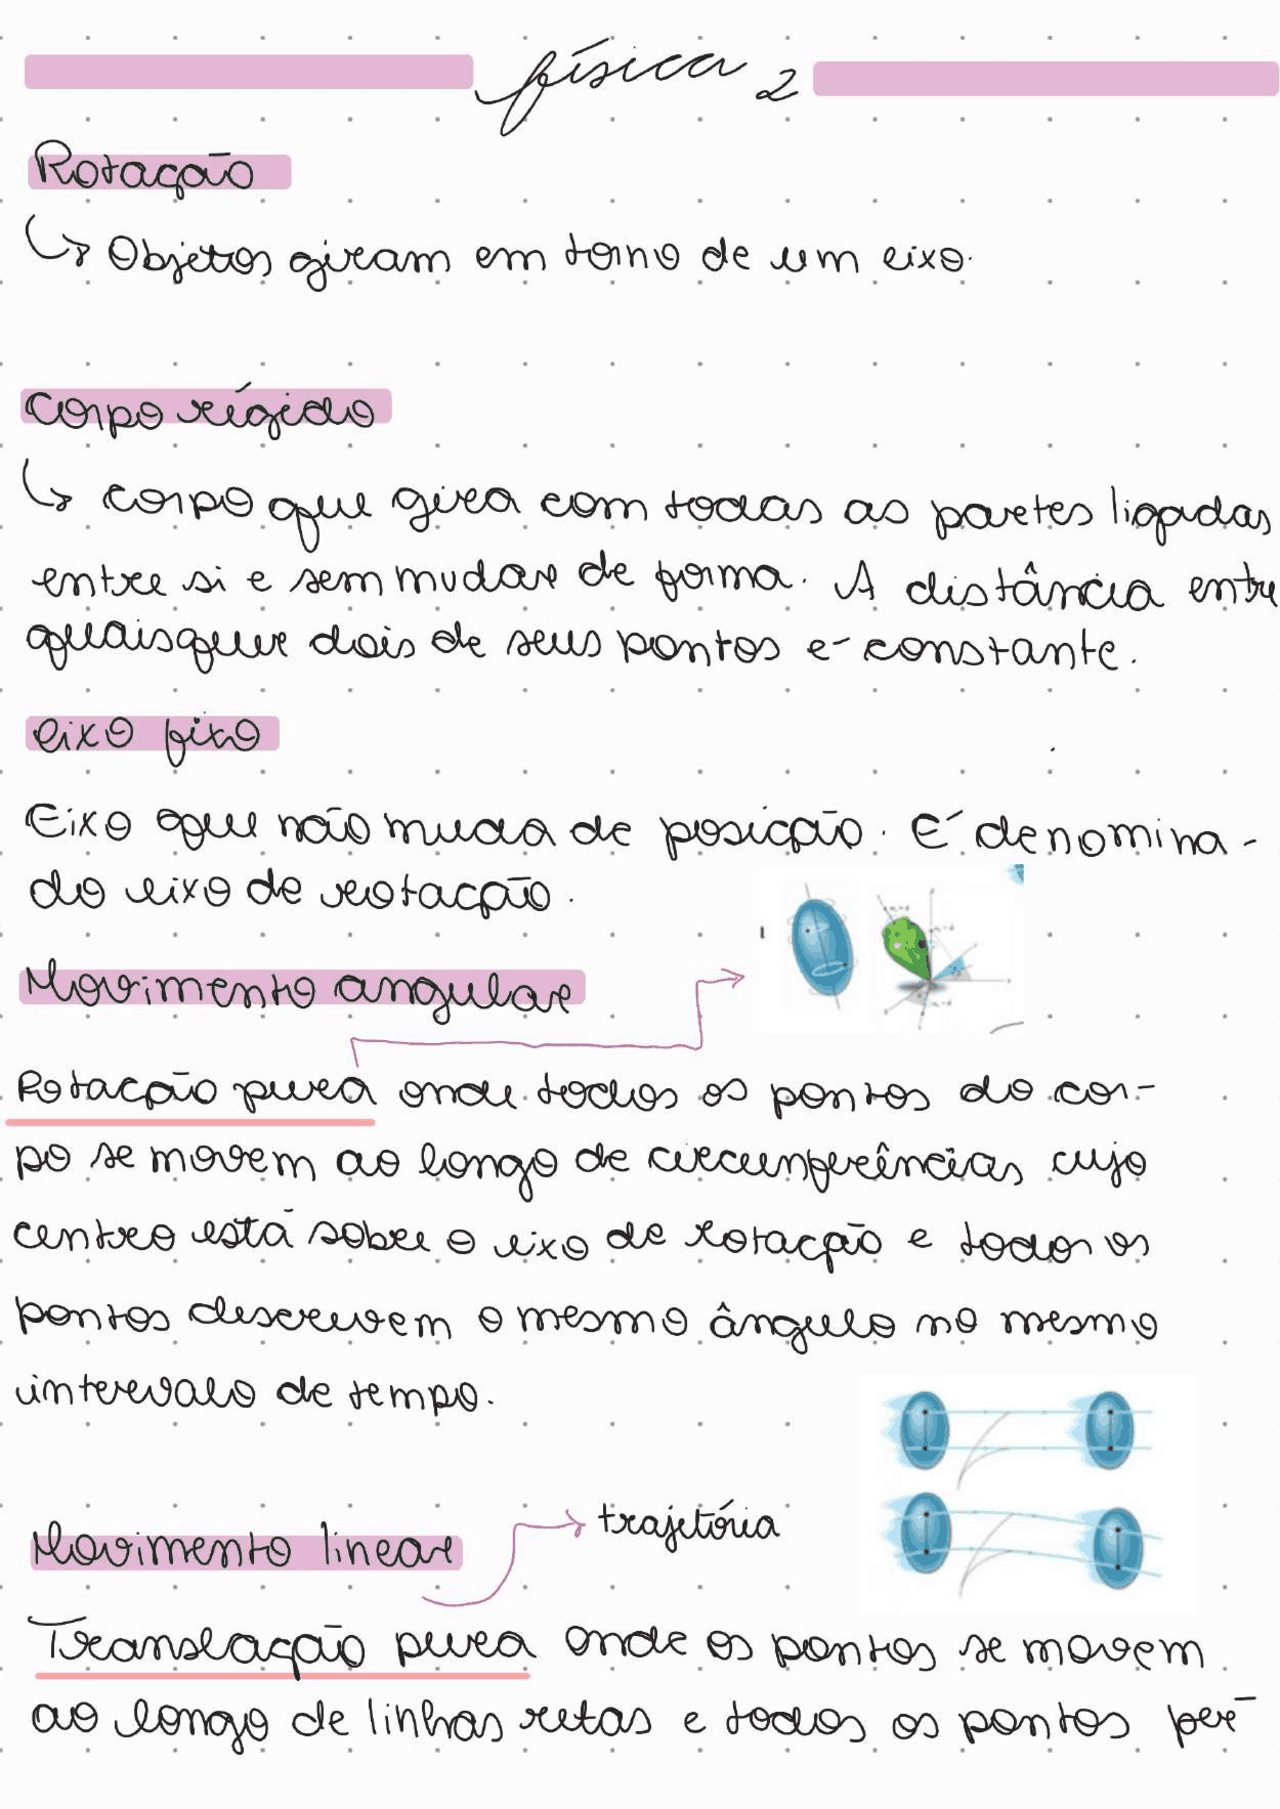 física 2
Rotação
↳ Objetos giram em torno de um eixo.
Corpo rígido
↳ corpo que gira com todas as partes ligadas
entre si e sem mudar de forma. A distância entre
quaisquer dois de seus pontos é constante.
eixo fixo
Eixo que não muda de posição. É denomina-
do eixo de rotação.
Movimento angular
Rotação pura onde todos os pontos do cor-
po se movem ao longo de circunferências cujo
centro está sobre o eixo de rotação e todos os
pontos descrevem o mesmo ângulo no mesmo
intervalo de tempo.
Movimento linear → trajetória
Translação pura onde os pontos se movem
ao longo de linhas retas e todos os pontos per-